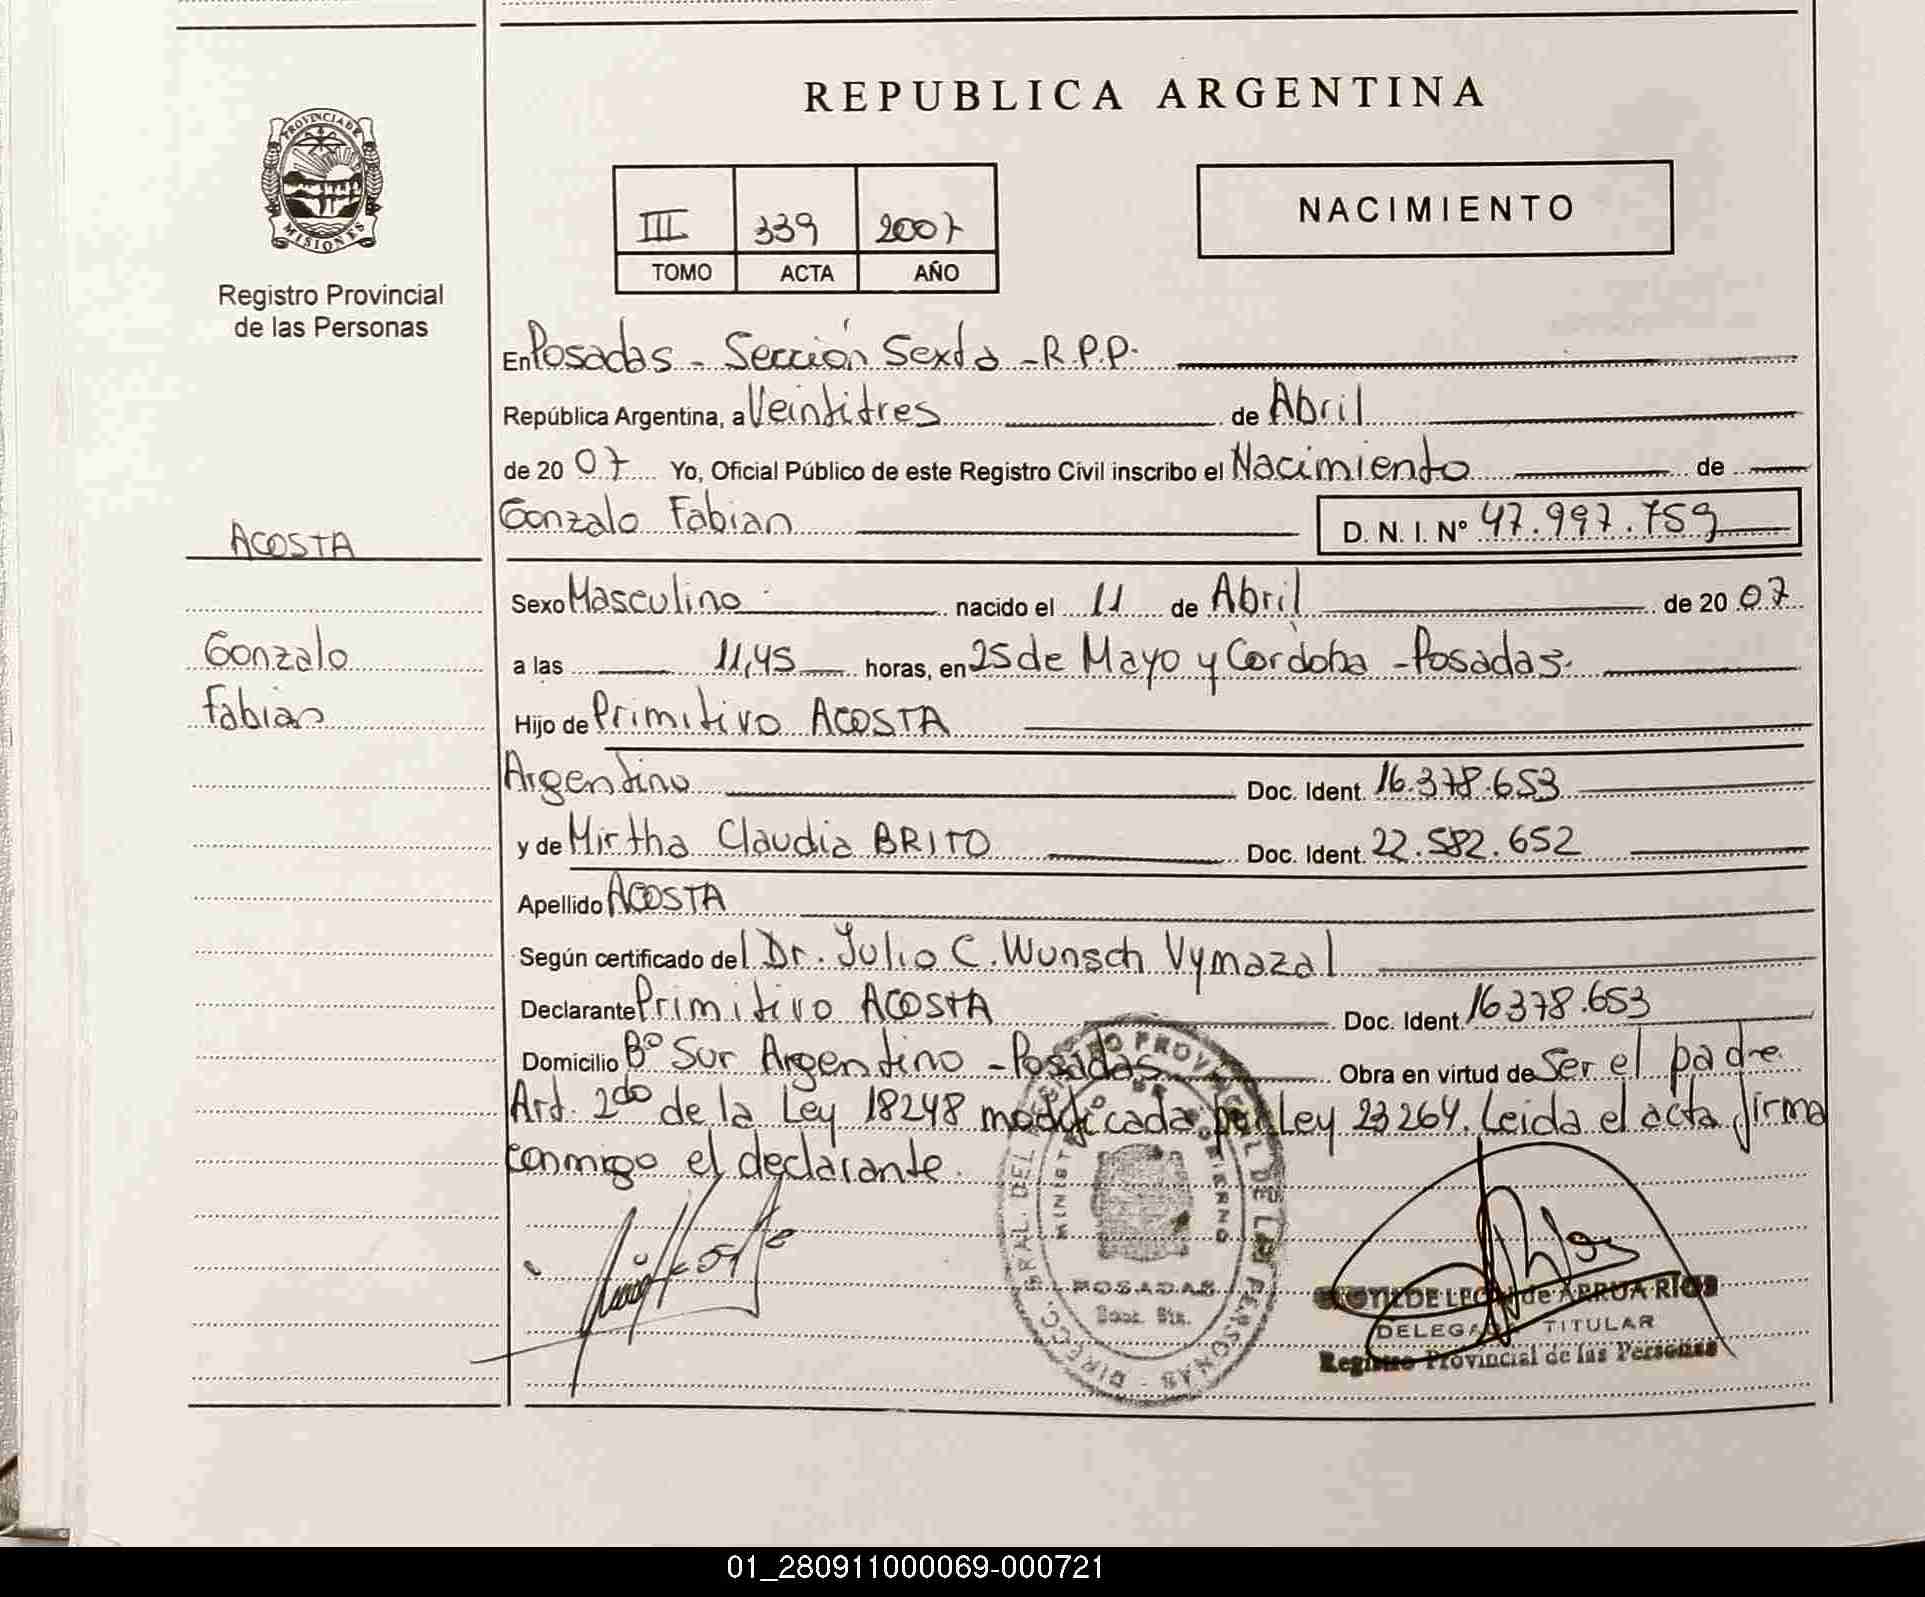 REPUBLICA ARGENTINA
PROVINCIA DE
MISIONES
Registro Provincial
de las Personas
III 339 2007
TOMO ACTA AÑO
NACIMIENTO
En Posadas - Sección Sexta - R.P.P.
República Argentina, a Veintitres de Abril
de 2007 Yo, Oficial Público de este Registro Civil inscribo el Nacimiento de
ACOSTA
Gonzalo Fabian D. N. I. Nº 47.997.759
Sexo Masculino nacido el 11 de Abril de 2007
Gonzalo
a las 11,45 horas, en 25 de Mayo y Cordoba - Posadas.
Fabian
Hijo de Primitivo ACOSTA
Argentino Doc. Ident. 16.378.653
y de Mirtha Claudia BRITO Doc. Ident. 22.582.652
Apellido ACOSTA
Según certificado del Dr. Julio C. Wunsch Vymazal
Declarante Primitivo ACOSTA Doc. Ident 16378.653
Domicilio Bº Sur Argentino - Posadas Obra en virtud de Ser el padre
Art. 2do de la Ley 18248 modificada por Ley 23264. Leida el acta firma
conmigo el declarante.
DIRECC. GRAL. DEL REGISTRO PROVINCIAL DE LAS PERSONAS
MINISTERIO DE GOBIERNO
POSADAS
DE LEON de ARRUA RIOS
DELEGADA TITULAR
Registro Provincial de las Personas
01_280911000069-000721